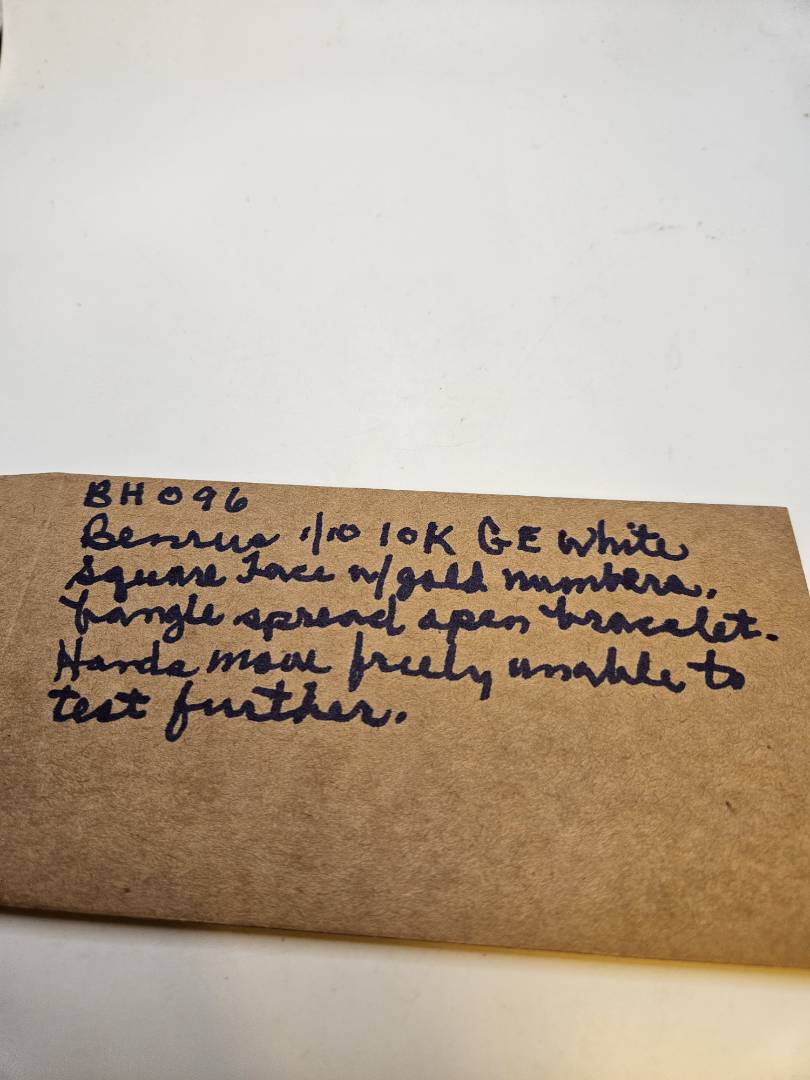 BH096
Benrus 1/10 10K GE white
square face w/gold numbers.
bangle spread open bracelet.
Hands move freely unable to
test further.